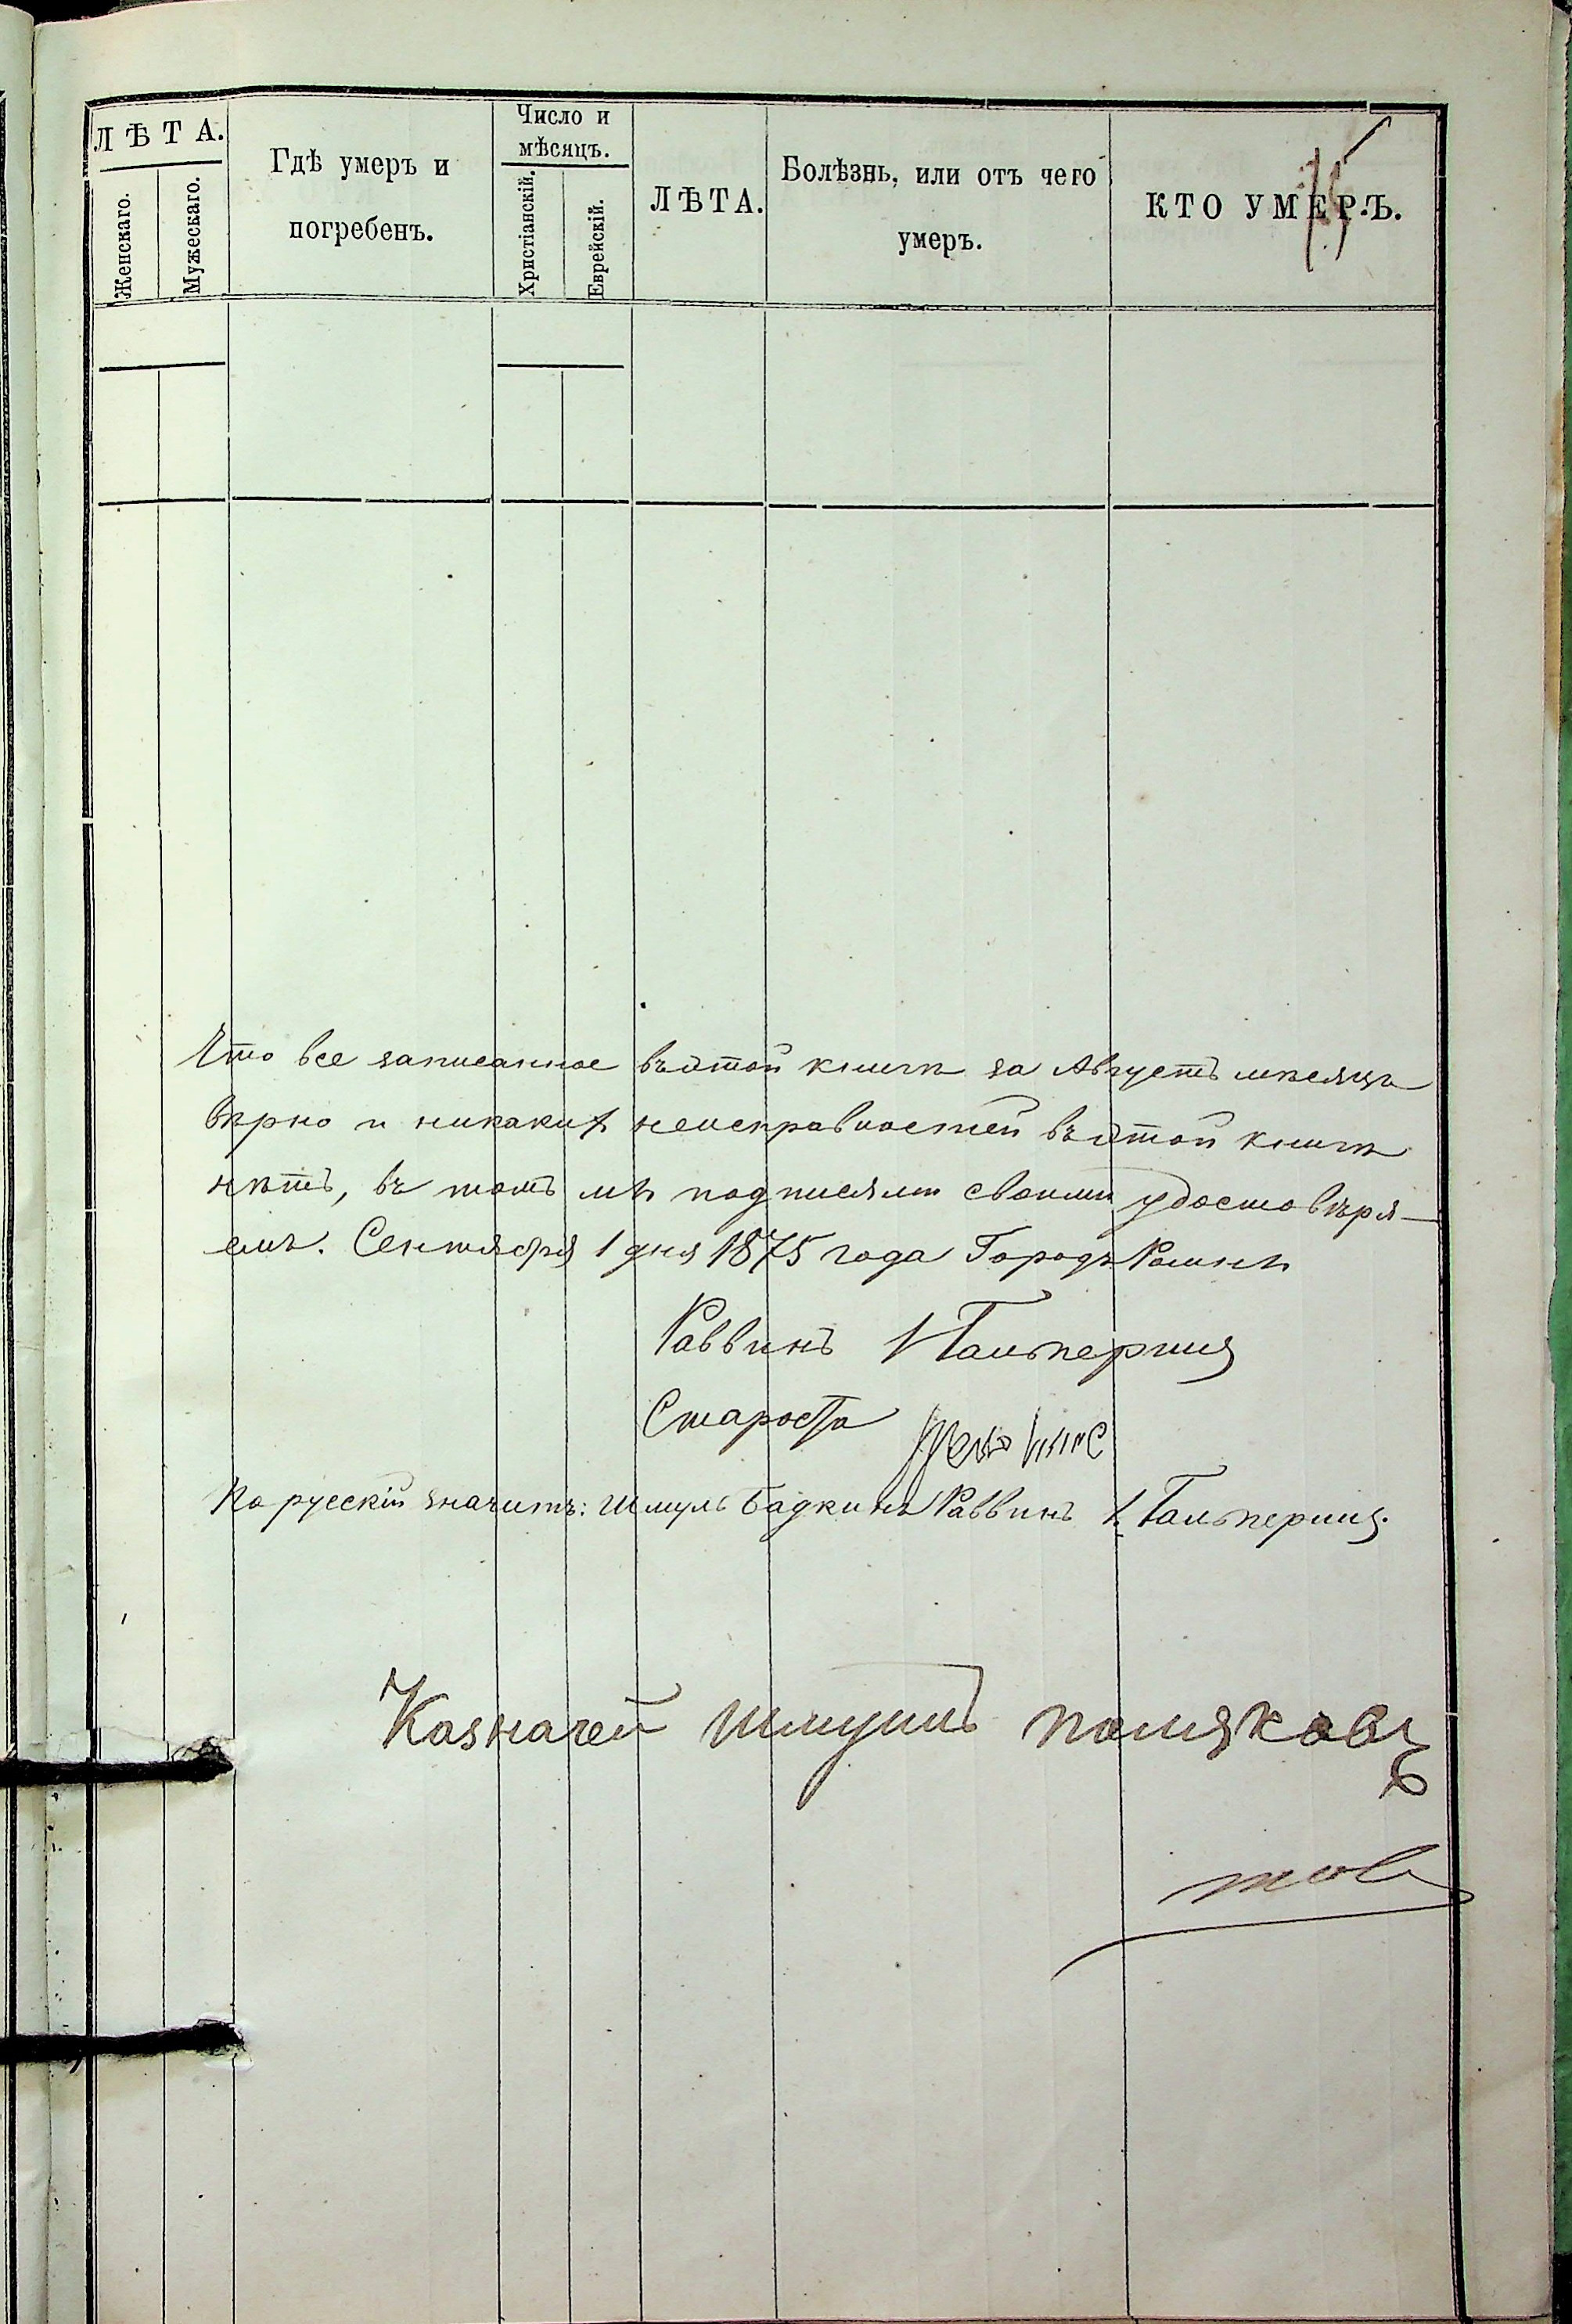 ЛѢТА.
Женскаго.
Мужескаго.
Гдѣ умеръ и
погребенъ.
Число и
мѣсяцъ.
Христіанскій.
Еврейскій.
ЛѢТА.
Болѣзнь, или отъ чего
умеръ.
КТО УМЕРЪ.
Что все записанное въ этой книгѣ за Августъ мѣсяцъ
вѣрно и никаких неисправностей въ этой книгѣ
нѣтъ, въ томъ мы подписями своими удостовѣря-
емъ. Сентября 1 дня 1875 года Городъ Ромны
Раввинъ Гальперинъ
Староста
По русскій значитъ: Шмуль Бадкинъ Раввинъ Гальперинъ.
Казначей Шмуилъ Поляковъ